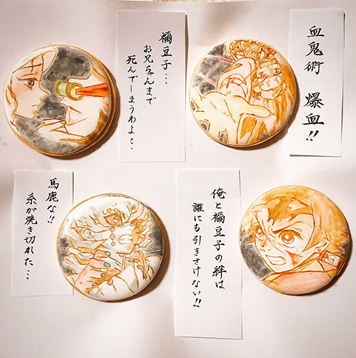 禰豆子…
お兄ちゃんまで
死んでしまうわよ…
血鬼術 爆血!!
馬鹿な!!
糸が焼き切れた…
俺と禰豆子の絆は
誰にも引きさけない!!